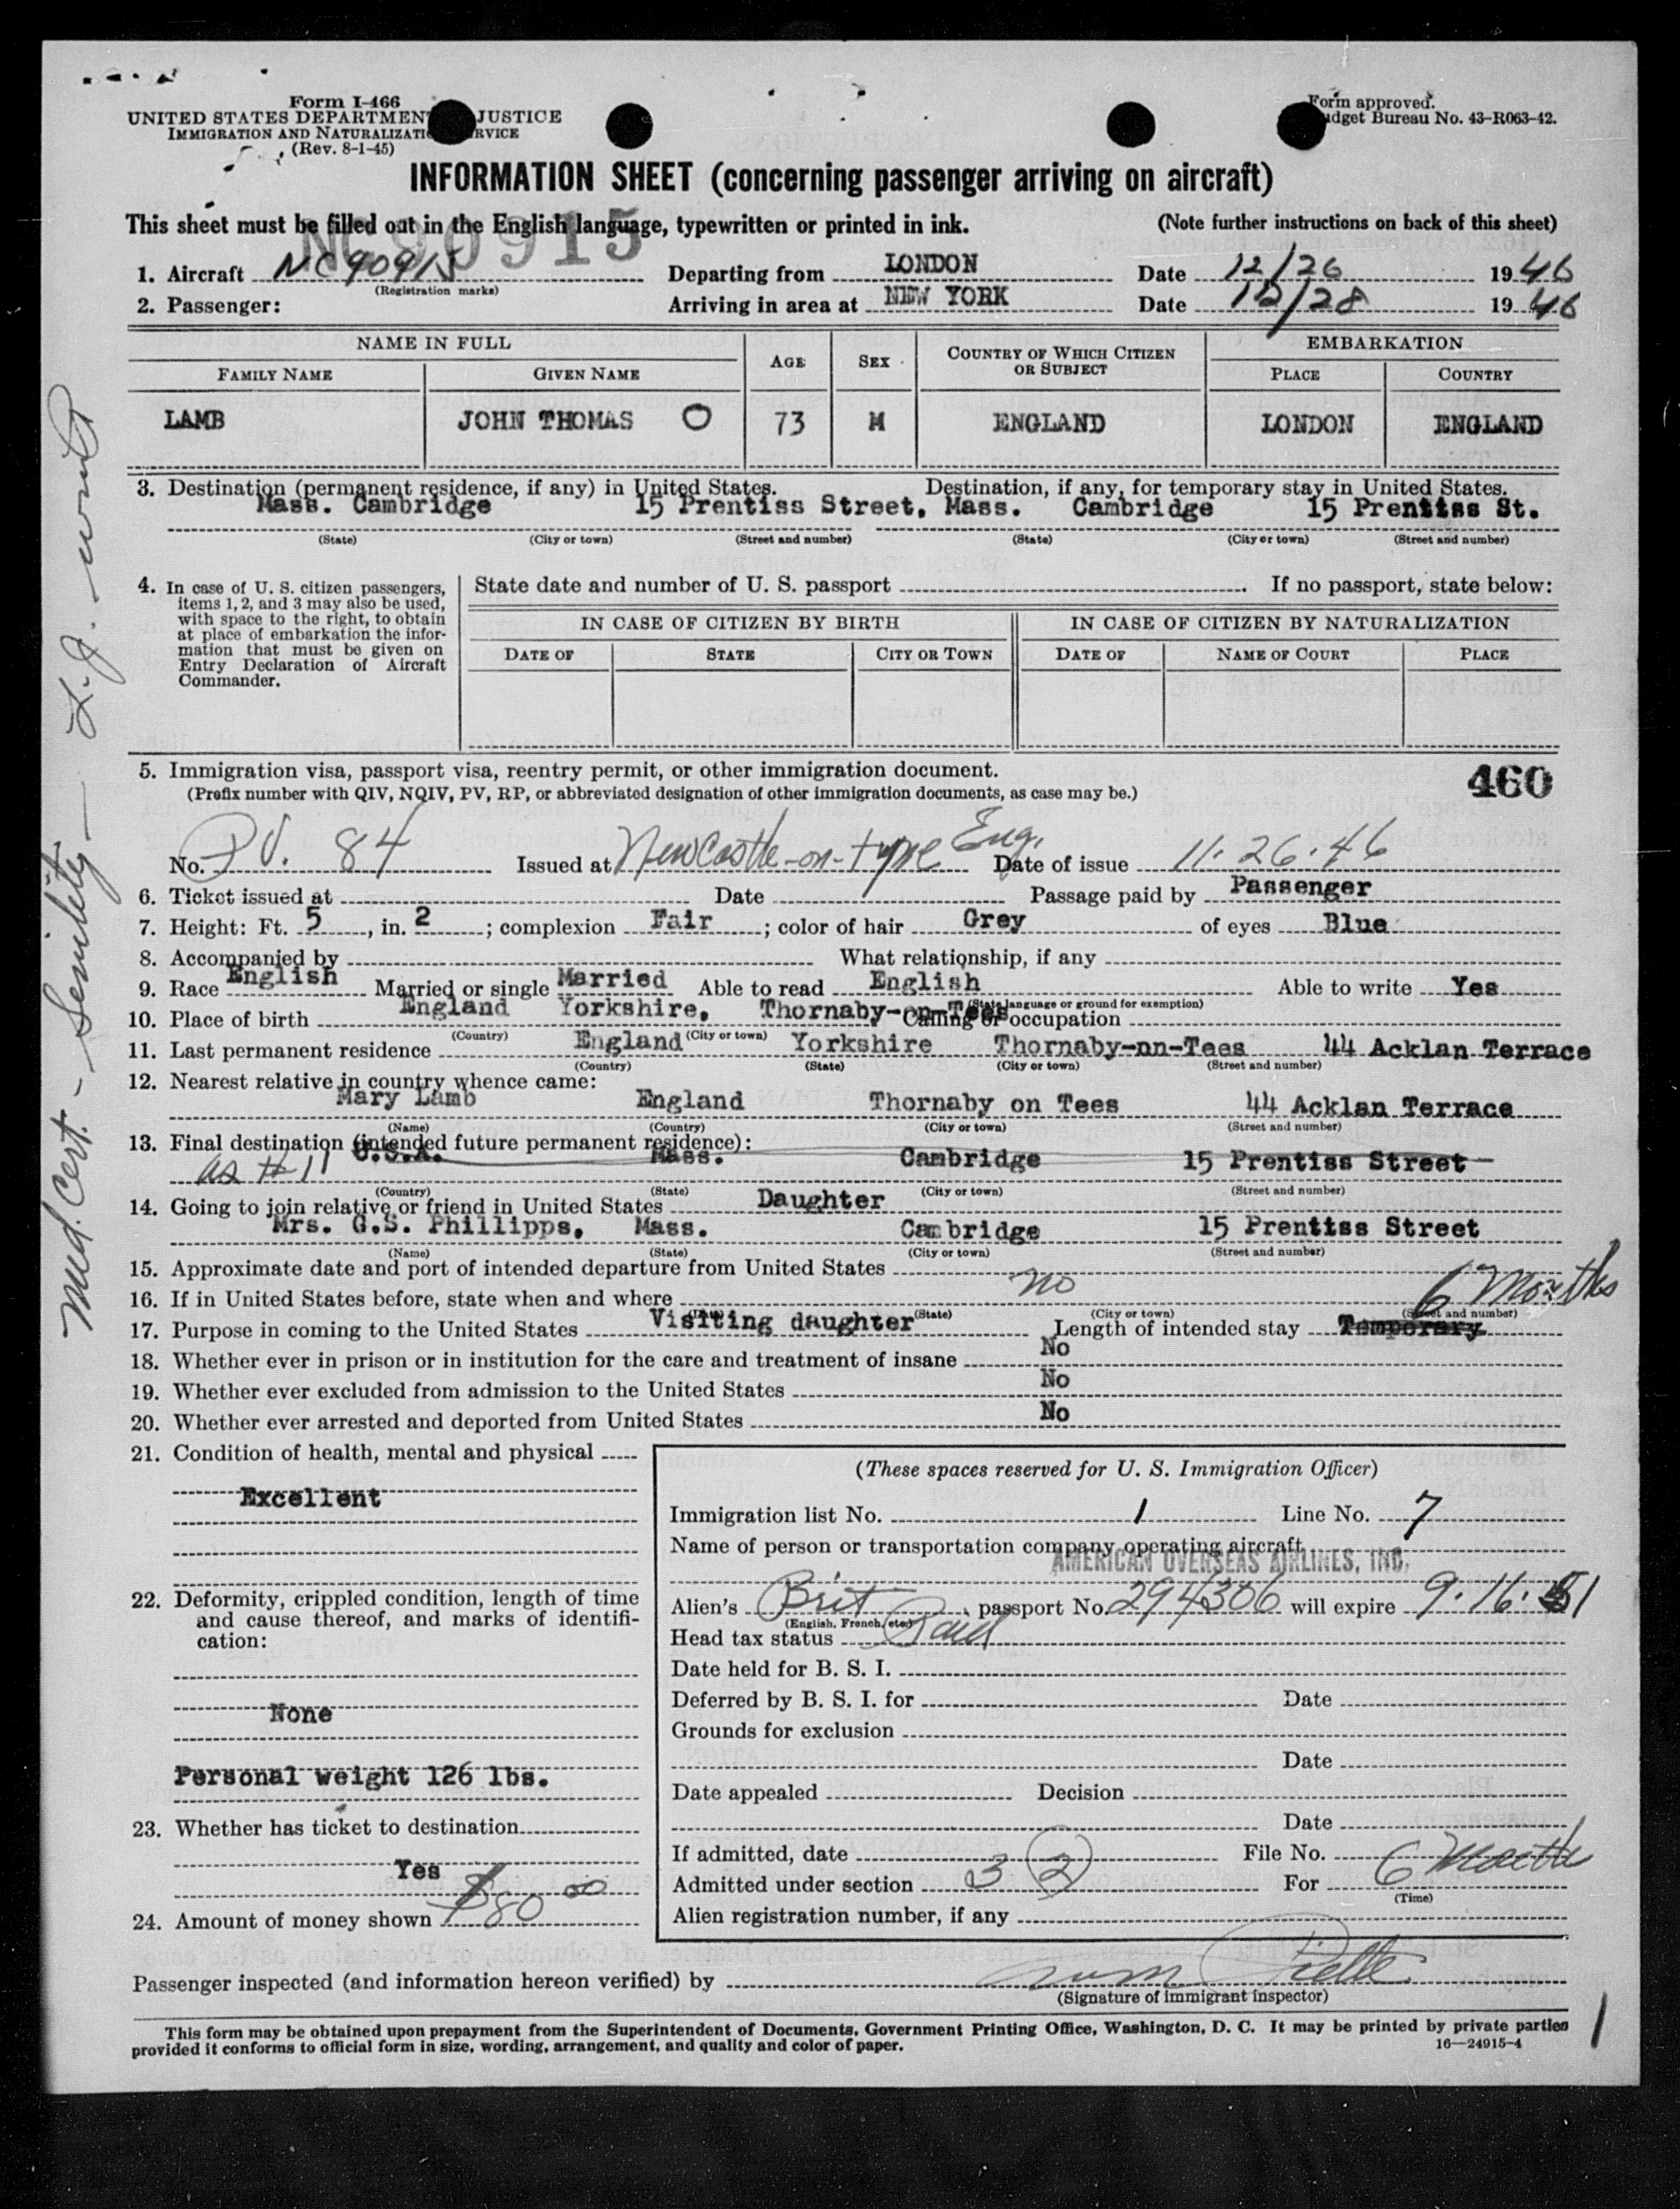 Form I-466
UNITED STATES DEPARTMENT JUSTICE
IMMIGRATION AND NATURALIZATI RVICE
(Rev. 8-1-45)
Form approved.
udget Bureau No. 43-R063-42.
INFORMATION SHEET (concerning passenger arriving on aircraft)
This sheet must be filled out in the English language, typewritten or printed in ink. (Note further instructions on back of this sheet)
NC90915
1. Aircraft NC90915 Departing from LONDON Date 12/26 1946
(Registration marks)
2. Passenger: Arriving in area at NEW YORK Date 12/28 1946
NAME IN FULL AGE SEX COUNTRY OF WHICH CITIZEN OR SUBJECT EMBARKATION
FAMILY NAME GIVEN NAME PLACE COUNTRY
LAMB JOHN THOMAS O 73 M ENGLAND LONDON ENGLAND
3. Destination (permanent residence, if any) in United States. Destination, if any, for temporary stay in United States.
Mass. Cambridge 15 Prentiss Street, Mass. Cambridge 15 Prentiss St.
(State) (City or town) (Street and number) (State) (City or town) (Street and number)
4. In case of U. S. citizen passengers, items 1, 2, and 3 may also be used, with space to the right, to obtain at place of embarkation the information that must be given on Entry Declaration of Aircraft Commander.
State date and number of U. S. passport . If no passport, state below:
IN CASE OF CITIZEN BY BIRTH IN CASE OF CITIZEN BY NATURALIZATION
DATE OF STATE CITY OR TOWN DATE OF NAME OF COURT PLACE
5. Immigration visa, passport visa, reentry permit, or other immigration document. 460
(Prefix number with QIV, NQIV, PV, RP, or abbreviated designation of other immigration documents, as case may be.)
No. P.V. 84 Issued at Newcastle-on-tyne Eng. Date of issue 11.26.46
6. Ticket issued at Date Passage paid by Passenger
7. Height: Ft. 5, in. 2; complexion Fair; color of hair Grey of eyes Blue
8. Accompanied by What relationship, if any
9. Race English Married or single Married Able to read English Able to write Yes
(State language or ground for exemption)
10. Place of birth England Yorkshire, Thornaby-on-Tees Calling or occupation
(Country) (City or town)
11. Last permanent residence England Yorkshire Thornaby-nn-Tees 44 Acklan Terrace
(Country) (State) (City or town) (Street and number)
12. Nearest relative in country whence came:
Mary Lamb England Thornaby on Tees 44 Acklan Terrace
(Name) (Country) (City or town) (Street and number)
13. Final destination (intended future permanent residence):
as #11 U.S.A. Mass. Cambridge 15 Prentiss Street
(Country) (State) (City or town) (Street and number)
14. Going to join relative or friend in United States Daughter
Mrs. G.S. Phillipps, Mass. Cambridge 15 Prentiss Street
(Name) (State) (City or town) (Street and number)
15. Approximate date and port of intended departure from United States
16. If in United States before, state when and where no
(State) (City or town) (Street and number)
6 Months
17. Purpose in coming to the United States Visiting daughter Length of intended stay Temporary
18. Whether ever in prison or in institution for the care and treatment of insane No
19. Whether ever excluded from admission to the United States No
20. Whether ever arrested and deported from United States No
21. Condition of health, mental and physical
Excellent
22. Deformity, crippled condition, length of time and cause thereof, and marks of identification:
None
Personal weight 126 lbs.
23. Whether has ticket to destination
Yes
24. Amount of money shown $80 00
(These spaces reserved for U. S. Immigration Officer)
Immigration list No. 1 Line No. 7
Name of person or transportation company operating aircraft
AMERICAN OVERSEAS AIRLINES, INC.
Alien's Brit passport No. 294306 will expire 9.16.51
(English, French, etc.)
Head tax status Paid
Date held for B. S. I.
Deferred by B. S. I. for Date
Grounds for exclusion
Date
Date appealed Decision
Date
If admitted, date File No.
Admitted under section 3 (2) For 6 Months
(Time)
Alien registration number, if any
Passenger inspected (and information hereon verified) by
(Signature of immigrant inspector)
This form may be obtained upon prepayment from the Superintendent of Documents, Government Printing Office, Washington, D. C. It may be printed by private parties
provided it conforms to official form in size, wording, arrangement, and quality and color of paper. 16—24915-4
1
Med. Cert. - Senility -